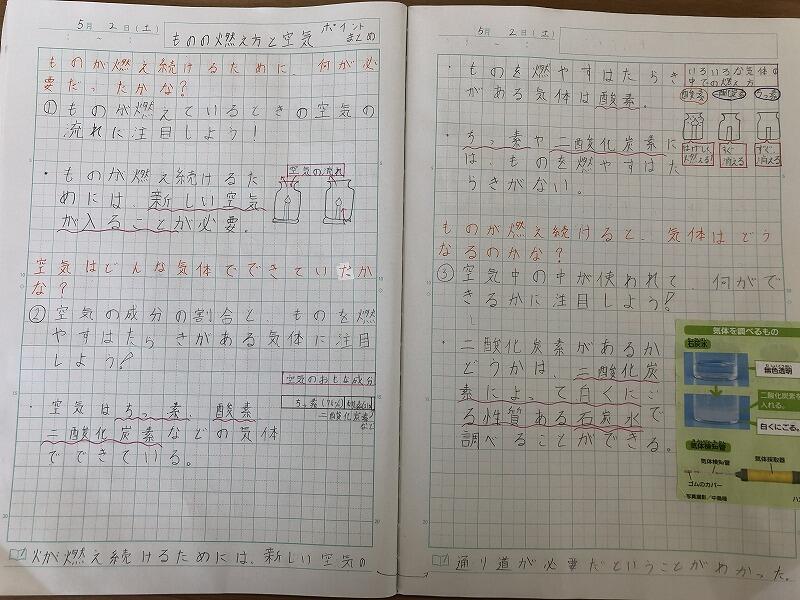 5月 2日(土)
ものの燃え方と空気 ポイント
まとめ
ものが燃え続けるために、何が必
要だったかな?
① ものが燃えているときの空気の
流れに注目しよう!
・ものが燃え続けるた
めには、新しい空気
が入ることが必要。
空気の流れ
空気はどんな気体でできていたか
な?
② 空気の成分の割合と、ものを燃
やすはたらきがある気体に注目
しよう!
空気のおもな成分
ちっ素(78%)
二酸化炭素
など
・空気はちっ素、酸素
二酸化炭素などの気体
でできている。
火が燃え続けるためには、新しい空気の
5月 2日(土)
・ものを燃やすはたらき
がある気体は酸素。
いろいろな気体の
中での燃え方
酸素 二酸化炭素 ちっ素
はげしく
燃える!
すぐ
消える
すぐ
消える
・ちっ素や二酸化炭素に
は、ものを燃やすはた
らきがない。
ものが燃え続けると、気体はどう
なるのかな?
③ 空気中の中が使われて、何がで
きるかに注目しよう!
・二酸化炭素があるか
どうかは、二酸化炭
素によって白くにご
る性質ある石炭水で
調べることができる。
気体を調べるもの
石灰水
無色透明
二酸化炭素を
入れる。
白くにごる。
気体検知管
気体検知管
気体採取器
ゴムのカバー
写真撮影/中島隆
ハン
通り道が必要だということがわかった。